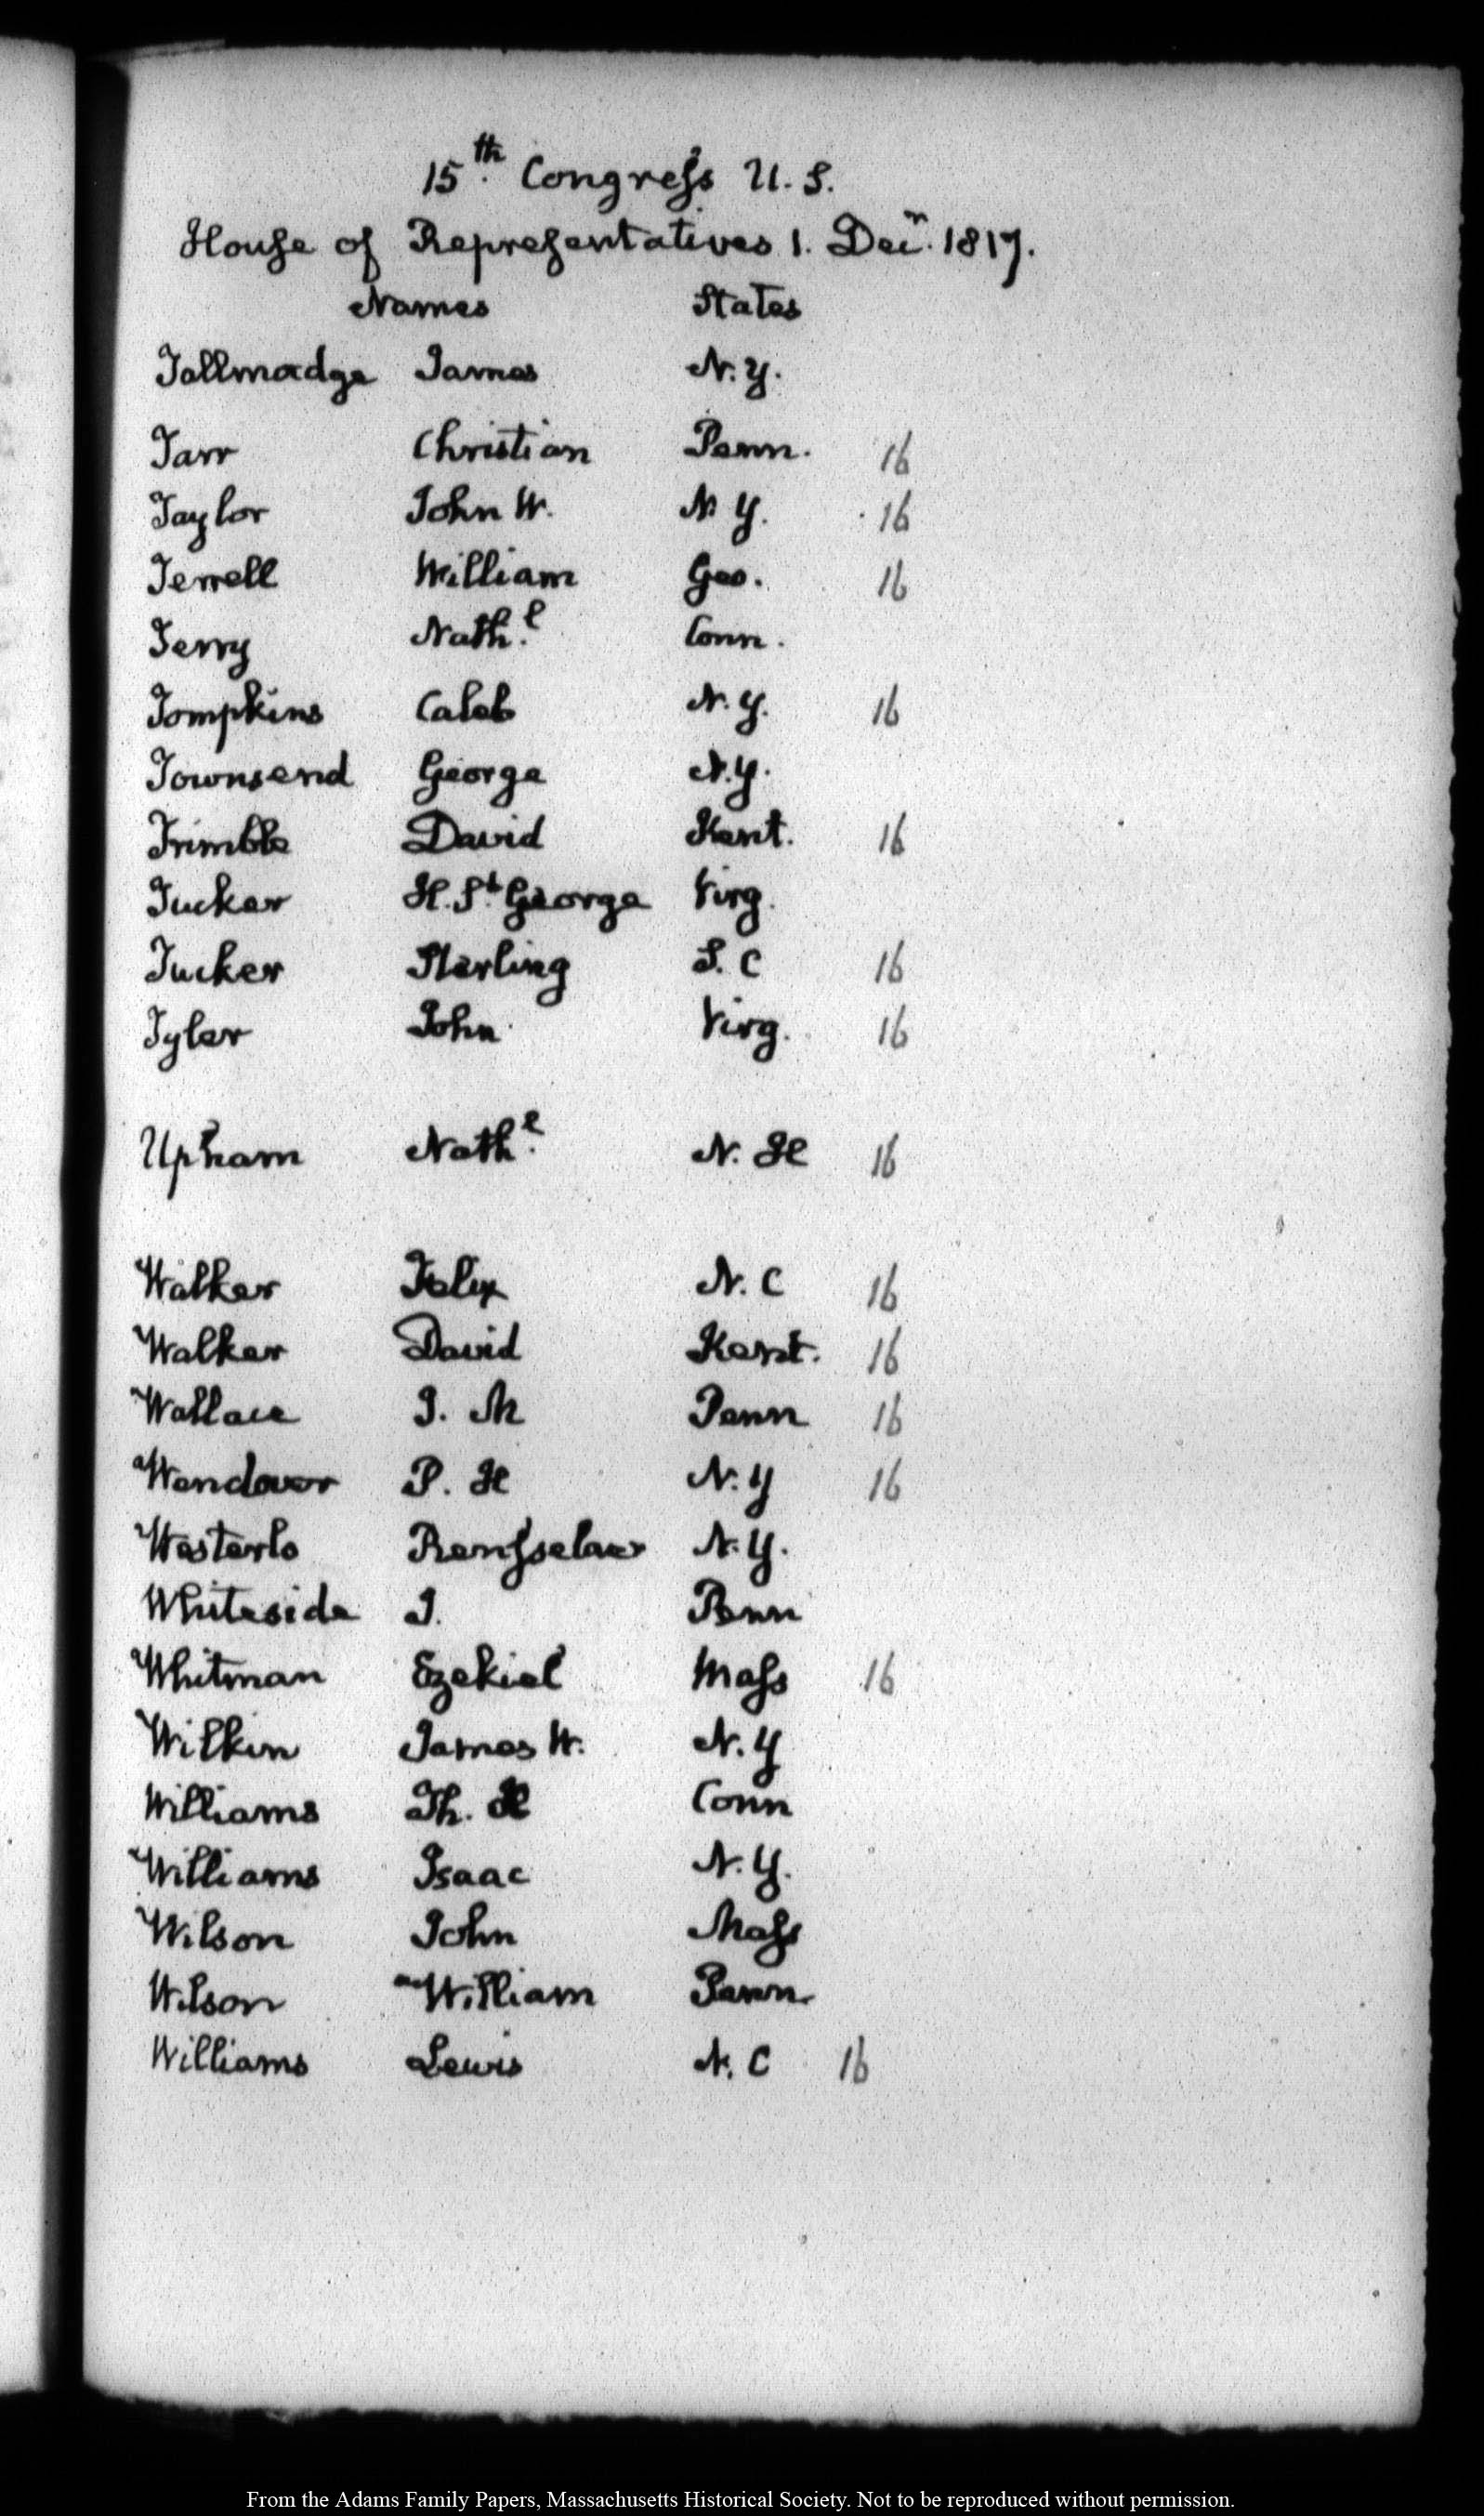 15th. Congress U. S.
House of Representatives 1. Decr. 1817.
Names States
Tallmadge James N. Y.
Tarr Christian Penn. 16
Taylor John W. N Y. 16
Terrell William Geo. 16
Terry Nathl. Conn.
Tompkins Caleb N. Y. 16
Townsend George N. Y.
Trimble David Kent. 16
Tucker H. St. George Virg.
Tucker Sterling S. C 16
Tyler John Virg. 16
Upham Nathl. N. H 16
Walker Felix N. C 16
Walker David Kent. 16
Wallace J. M Penn 16
Wendover P. H N. Y 16
Westerlo Rensselaer N. Y.
Whiteside J. Penn
Whitman Ezekiel Mass 16
Wilkin James W. N. Y
Williams Th. H Conn
Williams Isaac N. Y.
Wilson John Mass
Wilson William Penn
Williams Lewis N. C 16
From the Adams Family Papers, Massachusetts Historical Society. Not to be reproduced without permission.